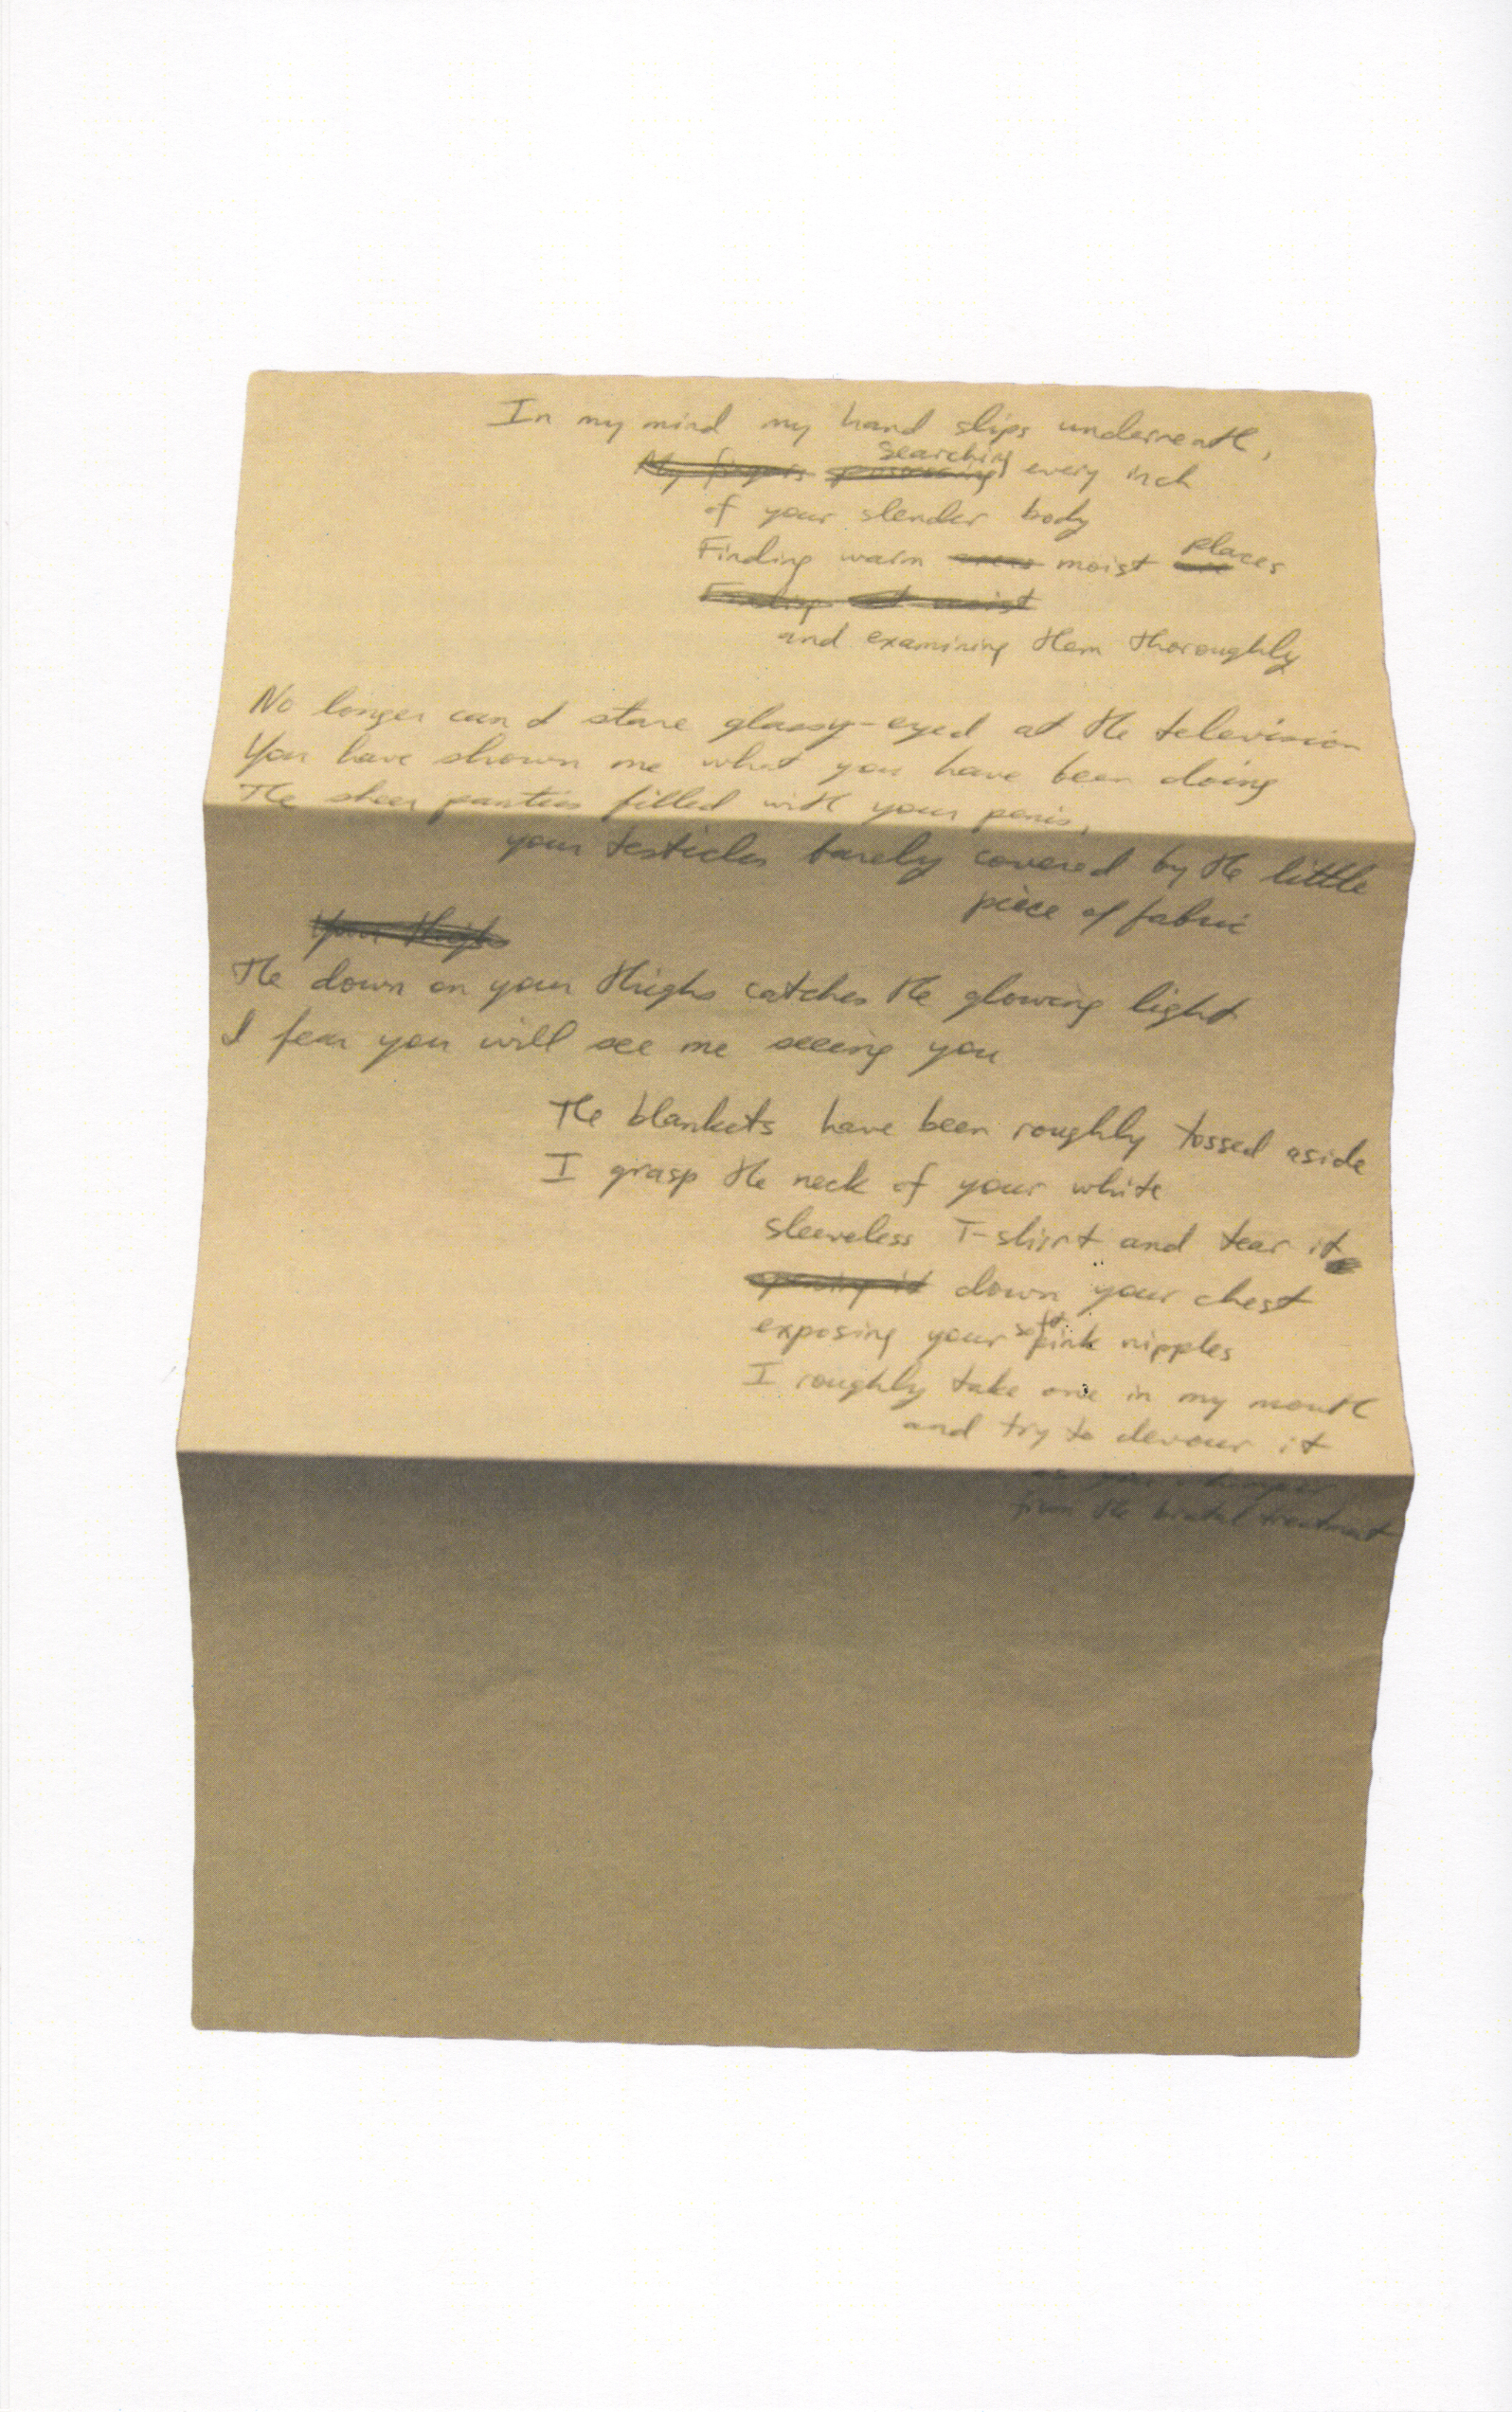 In my mind my hand slips underneath,
searching
My fingers possessing every inch
of your slender body
places
Finding warm areas moist
and examining them thoroughly
No longer can I stare glassy-eyed at the television
You have shown me what you have been doing
The sheer panties filled with your penis,
your testicles barely covered by the little
piece of fabric
Your thighs
The down on your thighs catches the glowing light
I fear you will see me seeing you
The blankets have been roughly tossed aside
I grasp the neck of your white
sleeveless T-shirt and tear it
opening it down your chest
soft
exposing your pink nipples
I roughly take one in my mouth
and try to devour it
as you whimper
from the brutal treatment